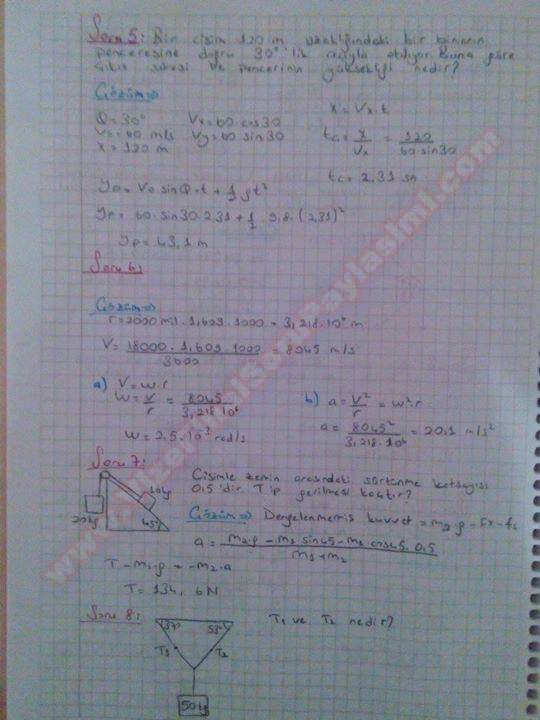 Soru 5: Bir cisim 120 m uzaklığındaki bir binanın
penceresine doğru 30°'lik açıyla atılıyor. Buna göre
çıkış süresi ve pencerenin yüksekliği nedir?
Çözüm⇒
Q=30° Vx=60.cos30 x=Vx.t
V=60 m/s Vy=60 sin30 tç=x/Vx = 120/60.sin30
x=120 m
tç=2,31 sn
yp=V0 sinQ.t + 1/2 gt²
yp=60.sin30.2,31+1/2 9,8.(2,31)²
yp=43,1 m
Soru 6:
Çözüm⇒
r=2000mil.1,609.1000=3,218.10⁶ m
V=18000.1,609.1000/3600 = 8045 m/s
a) V=w.r
w=V/r = 8045/3,218.10⁶
w=2,5.10⁻³ rad/s
b) a=V²/r = w².r
a=8045²/3,218.10⁶ = 20,1 m/s²
Soru 7:
20kg 10kg 45°
Cisimle zemin arasındaki sürtünme katsayısı
0,5'dir. T ip gerilmesi kaçtır?
Çözüm⇒ Dengelenmemiş kuvvet = m2.g-Fx-fs
a= m2.g-m1 sin45-m1 cos45.0,5/m1+m2
T-m1.g=-m2.a
T=134,6N
Soru 8: T1 ve T2 nedir?
37° 53°
T1 T2
50kg
www.UniversiteSoruPaylasimi.com